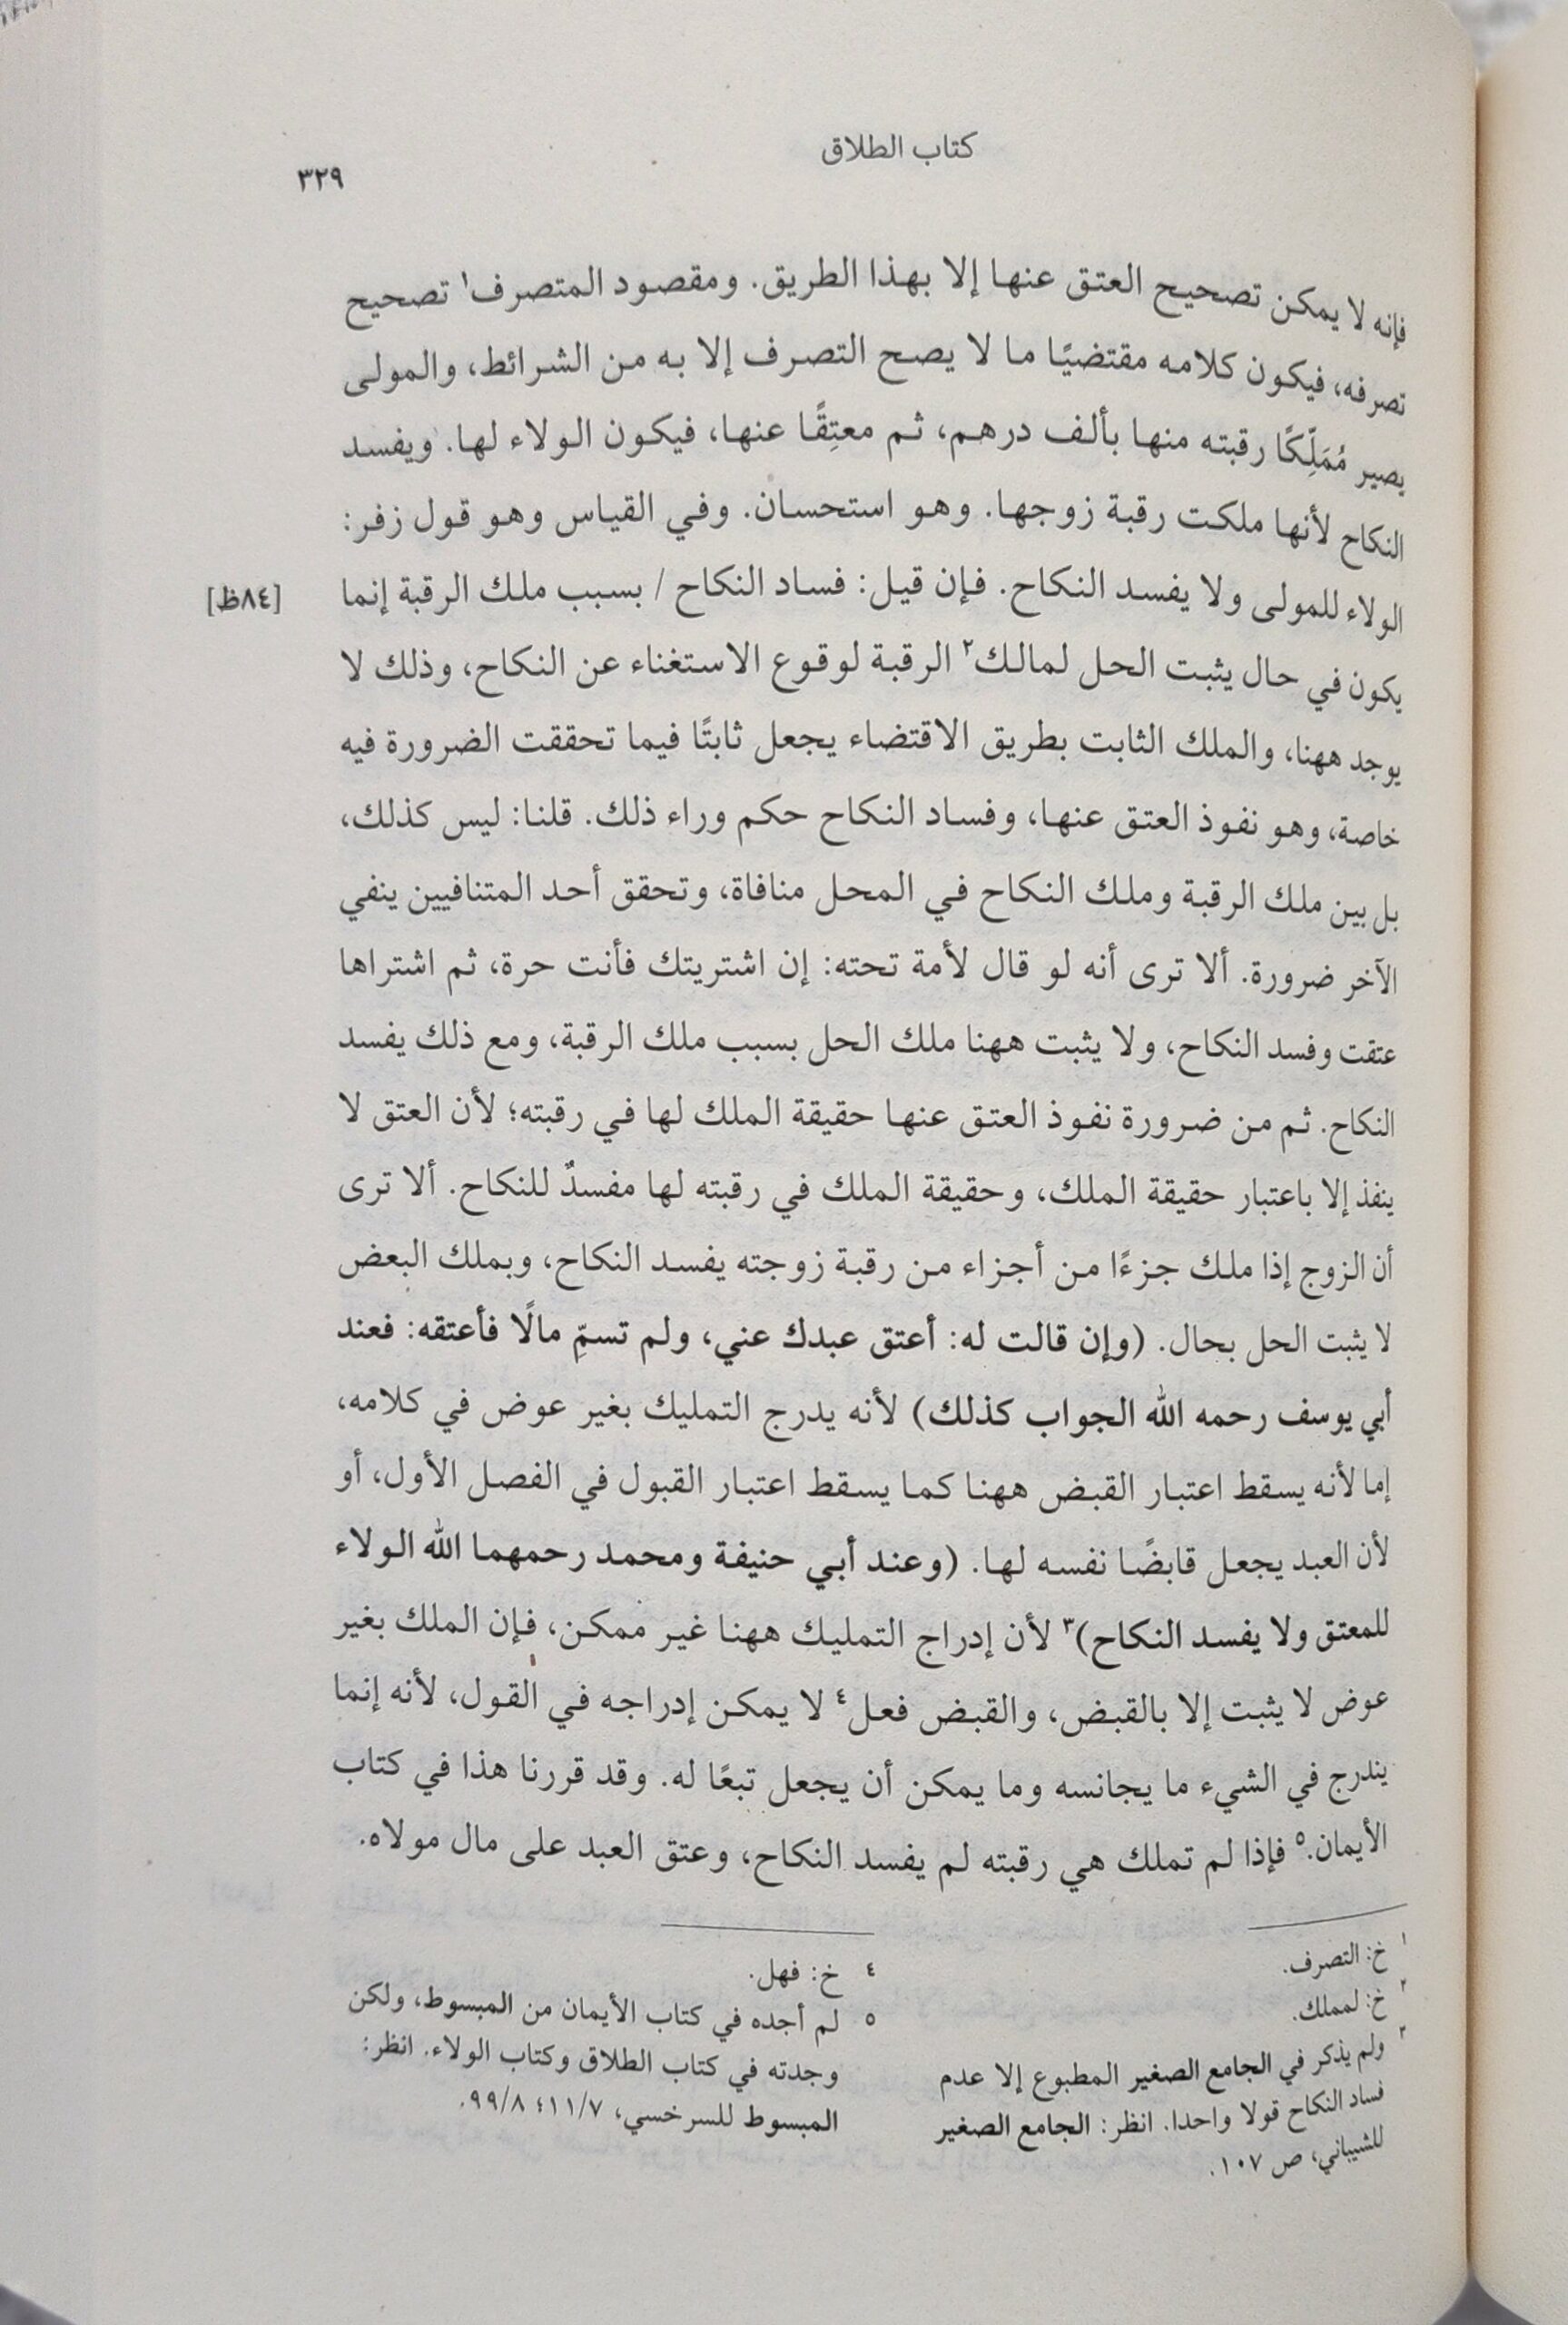 كتاب الطلاق
٣٢٩
فإنه لا يمكن تصحيح العتق عنها إلا بهذا الطريق. ومقصود المتصرف١ تصحيح
تصرفه، فيكون كلامه مقتضيًا ما لا يصح التصرف إلا به من الشرائط، والمولى
يصير مُمَلِّكًا رقبته منها بألف درهم، ثم معتِقًا عنها، فيكون الولاء لها. ويفسد
النكاح لأنها ملكت رقبة زوجها. وهو استحسان. وفي القياس وهو قول زفر:
الولاء للمولى ولا يفسد النكاح. فإن قيل: فساد النكاح / بسبب ملك الرقبة إنما
[٨٤ظ]
يكون في حال يثبت الحل لمالك٢ الرقبة لوقوع الاستغناء عن النكاح، وذلك لا
يوجد ههنا، والملك الثابت بطريق الاقتضاء يجعل ثابتًا فيما تحققت الضرورة فيه
خاصة، وهو نفوذ العتق عنها، وفساد النكاح حكم وراء ذلك. قلنا: ليس كذلك،
بل بين ملك الرقبة وملك النكاح في المحل منافاة، وتحقق أحد المتنافيين ينفي
الآخر ضرورة. ألا ترى أنه لو قال لأمة تحته: إن اشتريتك فأنت حرة، ثم اشتراها
عتقت وفسد النكاح، ولا يثبت ههنا ملك الحل بسبب ملك الرقبة، ومع ذلك يفسد
النكاح. ثم من ضرورة نفوذ العتق عنها حقيقة الملك لها في رقبته؛ لأن العتق لا
ينفذ إلا باعتبار حقيقة الملك، وحقيقة الملك في رقبته لها مفسدٌ للنكاح. ألا ترى
أن الزوج إذا ملك جزءًا من أجزاء من رقبة زوجته يفسد النكاح، وبملك البعض
لا يثبت الحل بحال. (وإن قالت له: أعتق عبدك عني، ولم تسمِّ مالًا فأعتقه: فعند
أبي يوسف رحمه الله الجواب كذلك) لأنه يدرج التمليك بغير عوض في كلامه،
إما لأنه يسقط اعتبار القبض ههنا كما يسقط اعتبار القبول في الفصل الأول، أو
لأن العبد يجعل قابضًا نفسه لها. (وعند أبي حنيفة ومحمد رحمهما الله الولاء
للمعتق ولا يفسد النكاح)٣ لأن إدراج التمليك ههنا غير ممكن، فإن الملك بغير
عوض لا يثبت إلا بالقبض، والقبض فعل٤ لا يمكن إدراجه في القول، لأنه إنما
يندرج في الشيء ما يجانسه وما يمكن أن يجعل تبعًا له. وقد قررنا هذا في كتاب
الأيمان.٥ فإذا لم تملك هي رقبته لم يفسد النكاح، وعتق العبد على مال مولاه.
١ خ: التصرف.
٢ خ: لمملك.
٣ ولم يذكر في الجامع الصغير المطبوع إلا عدم
فساد النكاح قولا واحدا. انظر: الجامع الصغير
للشيباني، ص ١٠٧.
٤ خ: فهل.
٥ لم أجده في كتاب الأيمان من المبسوط، ولكن
وجدته في كتاب الطلاق وكتاب الولاء. انظر:
المبسوط للسرخسي، ١١/٧؛ ٩٩/٨.